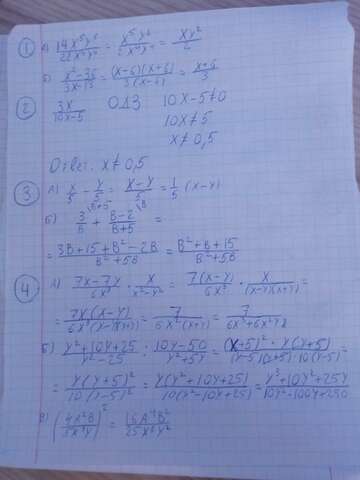 ① а) 14x⁵y⁶ / 22x⁴y⁴ = x⁵y⁶ / 2x⁴y⁴ = xy² / 2
б) x²-36 / 3x-18 = (x-6)(x+6) / 3(x-6) = x+6 / 3
② 3x / 10x-5 ОДЗ 10x-5≠0
10x≠5
x≠0,5
Ответ. x≠0,5
③ а) x/5 - y/5 = x-y / 5 = 1/5 (x-y)
б) 3/B + B-2 / B+5 =
= 3B+15+B²-2B / B²+5B = B²+B+15 / B²+5B
④ а) 7x-7y / 6x³ · x / x²-y² = 7(x-y) / 6x³ · x / (x-y)(x+y) =
= 7x(x-y) / 6x³(x-y)(x+y) = 7 / 6x²(x+y) = 7 / 6x³+6x²y
б) y²+10y+25 / y²-25 : 10y-50 / y²+5y = (y+5)² · y(y+5) / (y-5)(y+5) · 10(y-5) =
= y(y+5)² / 10(y-5)² = y(y²+10y+25) / 10(y²-10y+25) = y³+10y²+25y / 10y²-100y+250
в)